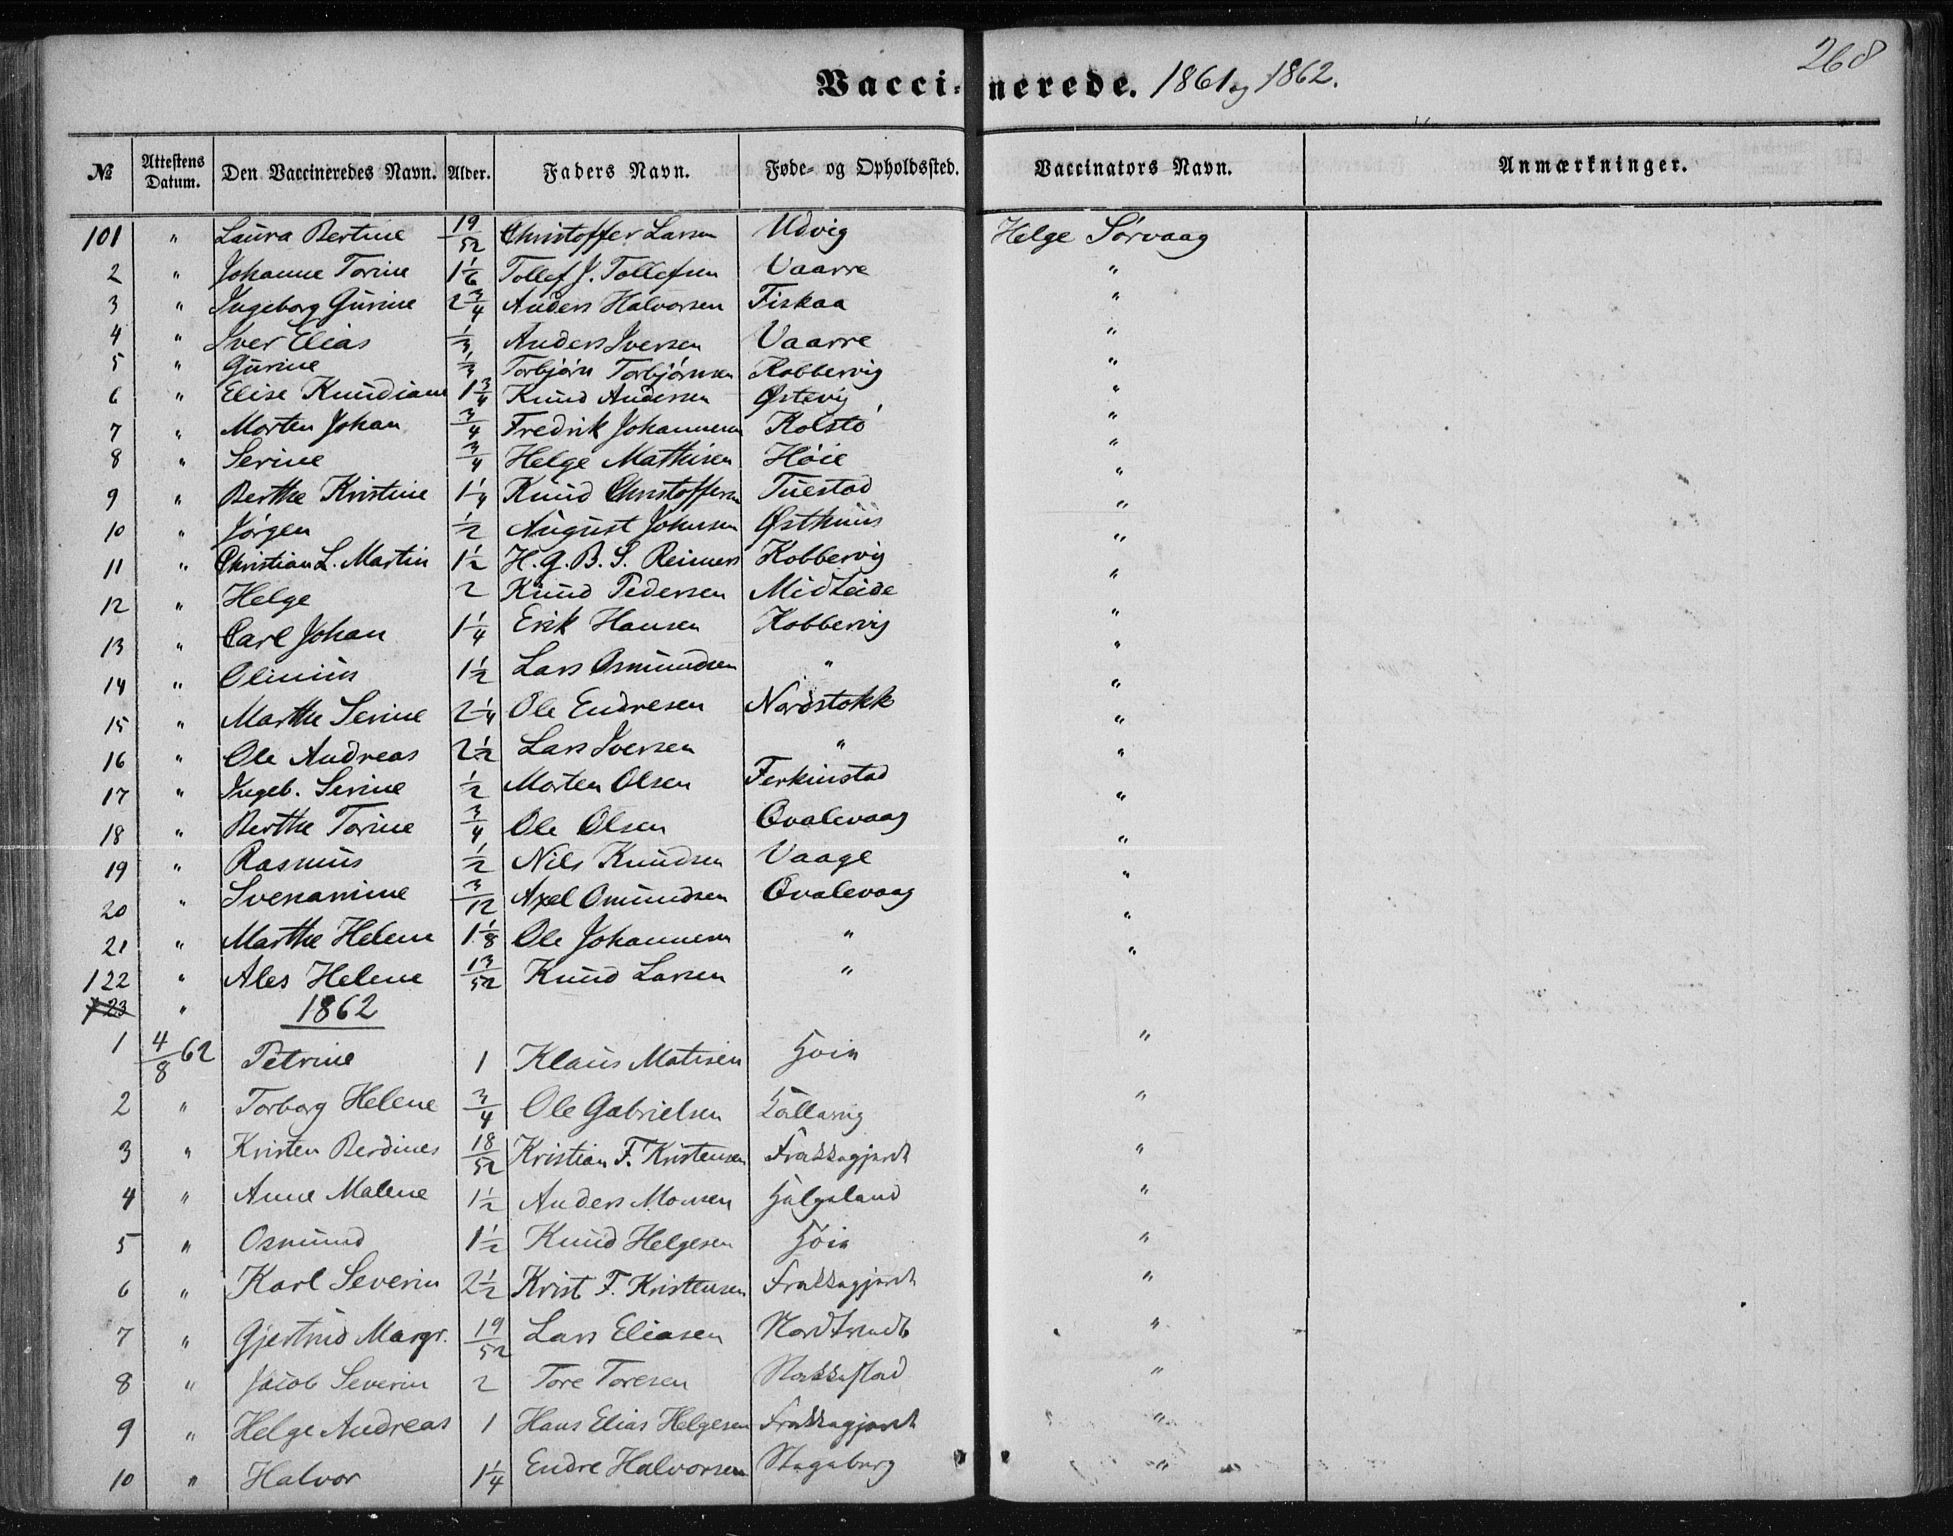 268
Vaccinerede. 1861 og 1862.
№ | Attestens Datum. | Den Vaccineredes Navn. | Alder. | Faders Navn. | Føde- og Opholdssted. | Vaccinators Navn. | Anmærkninger.
101 " Laura Bertine 19/52 Christoffer Larsen Udvig Helge Sørvaag
2 " Johanne Torine 1 1/6 Tollef J. Tollefsen Vaarre "
3 " Ingeborg Gurine 2 3/4 Anders Halvorsen Fiskaa "
4 " Iver Elias 1/3 Anders Iversen Vaarre "
5 " Gurine 1/3 Torbjørn Torbjørnsen Kobbervig "
6 " Elise Knudiane 1 3/4 Knud Andersen Østevig "
7 " Morten Johan 3/4 Fredrik Johannesen Kolstø "
8 " Serine 3/4 Helge Mathisen Høie "
9 " Berthe Kristine 1 1/4 Knud Christoffersen Tuestad "
10 " Jørgen 1/2 August Johnsen Østhuus "
11 " Christian L. Martin 1 1/2 H. G. B. S. Reimers Kobbervig "
12 " Helge 2 Knud Pedersen Midteide "
13 " Carl Johan 1 1/4 Erik Hansen Kobbervig "
14 " Olinius 1 1/2 Lars Osmundsen " "
15 " Marthe Serine 2 1/4 Ole Endresen Nordstokk "
16 " Ole Andreas 2 1/2 Lars Iversen " "
17 " Ingeb. Serine 1/2 Morten Olsen Ferkinstad "
18 " Berthe Torine 3/4 Ole Olsen Qvalevaag "
19 " Rasmus 1/2 Nils Knudsen Vaage "
20 " Svenamine 3/12 Axel Omundsen Qvalevaag "
21 " Marthe Helene 1 1/8 Ole Johannesen " "
122 " Ales Helene 13/52 Knud Larsen " "
123 " 1862
1 4/8 62 Petrine 1 Klaus Matisen "
2 " Torborg Helene 3/4 Ole Gabrielsen "
3 " Kristen Berdines 18/52 Kristian F. Kristensen Frakkagjerdt "
4 " Anne Malene 1 1/2 Anders Monsen Helgeland "
5 " Osmund 1 1/2 Knud Helgesen Høie "
6 " Karl Severin 2 1/2 Krist F. Kristensen Frakkagjerdt "
7 " Gjertrud Margr. 19/52 Lars Eliasen "
8 " Jacob Severin 2 Tore Toresen Stakkestad "
9 " Helge Andreas 1 Hans Elias Helgesen Frakkagjerdt "
10 " Halvor 1 1/4 Endre Halvorsen Stegaberg "